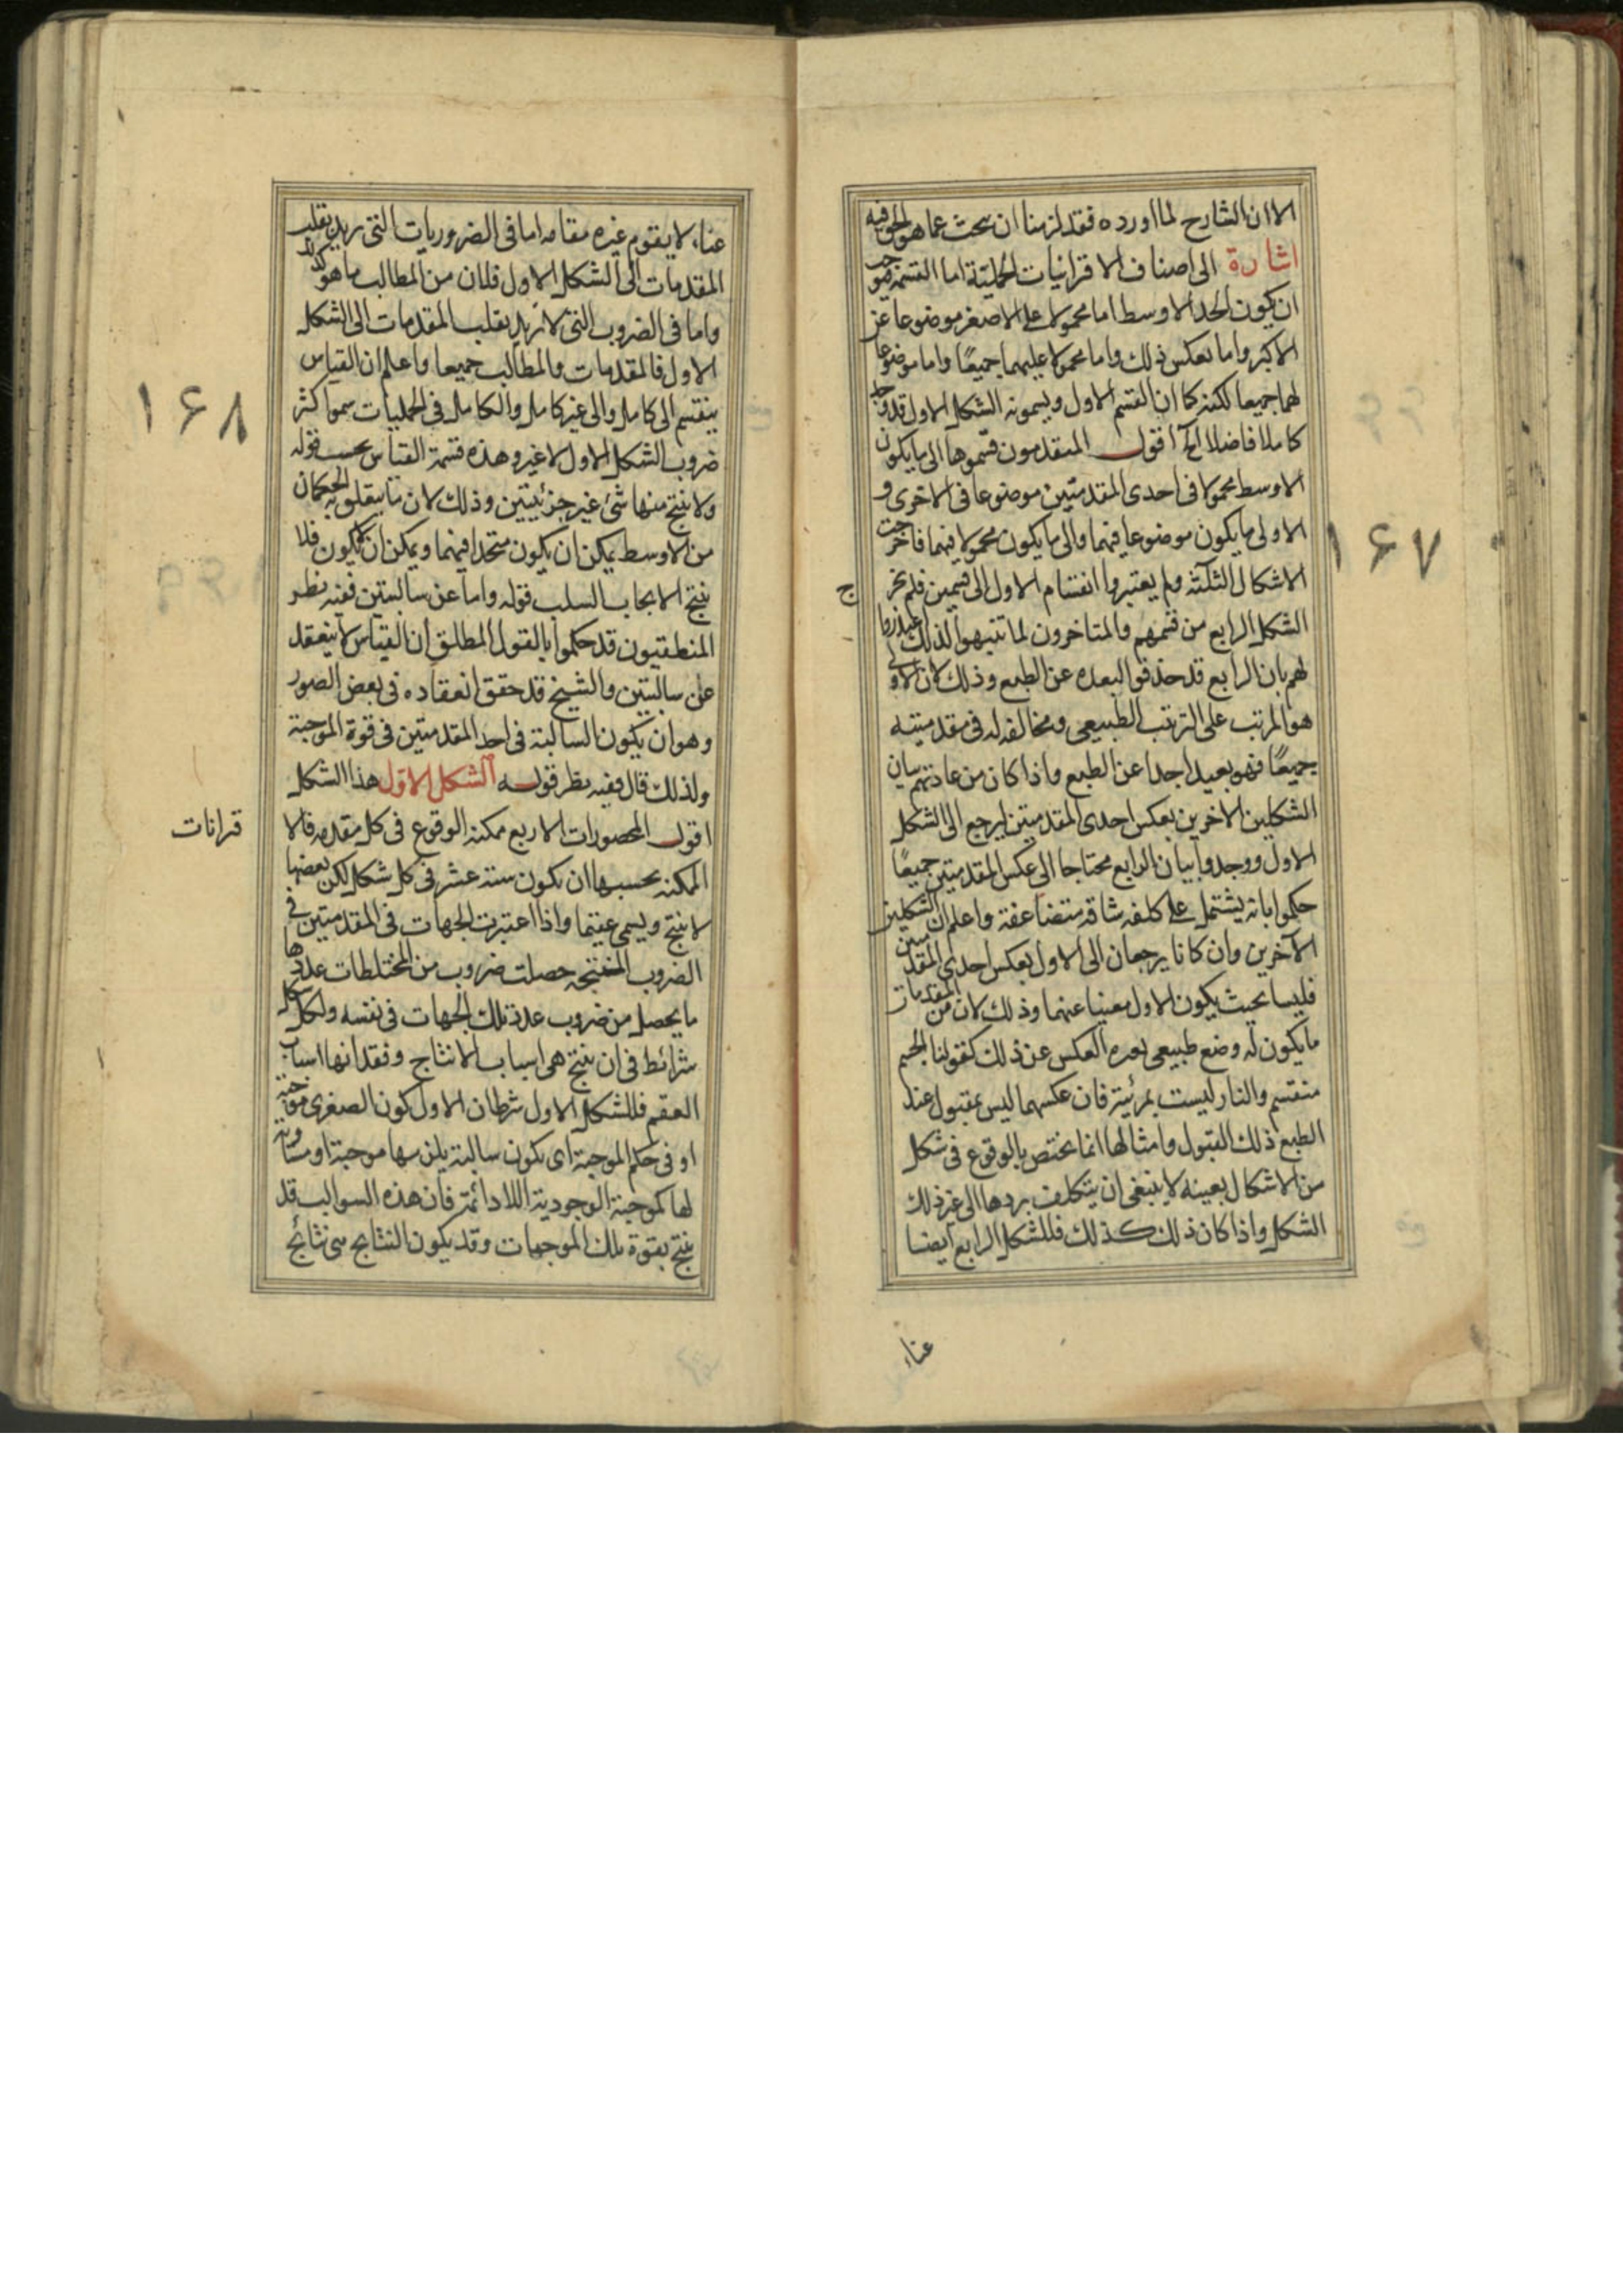 الا ان الشارح لما اورده فقد لزمنا ان نبحث عما هو الحق فيه
اشارة الى اصناف الاقترانيات الحملية اما القسمة فتوجب
ان يكون الحد الاوسط اما محمولا على الاصغر موضوعا
الاكبر واما بعكس ذلك واما محمولا عليهما جميعًا واما موضوعا
لهما جميعا لكنه كما ان القسم الاول ويسمونه الشكل الاول قد وجد
كاملا فاضلا الخ اقول المتقدمون قسموها الى ما يكون
الاوسط محمولا فى احدى المقدمتين موضوعا فى الاخرى و
الاولى ما يكون موضوعا فيهما والى ما يكون محمولا فيهما فاخرجت
الاشكال الثلثة ولم يعتبروا انقسام الاول الى قسمين فلم يخر
ج
الشكل الرابع من قسمهم والمتاخرون لما تنبهوا لذلك اعتذروا
لهم بان الرابع قد حذفوا لبعده عن الطبع وذلك لان الاول
هو المرتب على الترتب الطبيعى ومخالفه له فى مقدمتيه
جميعًا فهو بعيد جدا عن الطبع واذا كان من عادتهم بيان
الشكلين الاخرين بعكس احدى المقدمتين ليرجع الى الشكل
الاول ووجدوا بيان الرابع محتاجا الى عكس المقدمتين جميعًا
حكموا بانه يشتمل على كلفه شاقه متضاعفة واعلم ان الشكلين
الآخرين وان كانا يرجعان الى الاول بعكس احدى المقدمتين
فليسا بحيث يكون الاول مغنيا عنهما وذلك لان من المقدمات
ما يكون له وضع طبيعى العكس عن ذلك كقولنا الجسم
منقسم والنار ليست بمرئية فان عكسهما ليس بمقبول عند
الطبع ذلك القبول وامثالها انما يختص بالوقوع فى شكل
من الاشكال بعينه لا ينبغى ان يتكلف بردها الى غير ذلك
الشكل واذا كان ذلك كذلك فللشكل الرابع ايضا
عناء
۱۶۷
عناء لا يقوم غيره مقامه اما فى الضروريات التى يقلب
المقدمات الى الشكل الاول فلان من المطالب ما هو كذلك
واما فى الضروب التى لا تريد بقلب المقدمات الى الشكل
الاول فالمقدمات والمطالب جميعا واعلم ان القياس
ينقسم الى كامل والى غير كامل والكامل فى الحمليات هو اكثر
ضروب الشكل الاول لا غير وهذه قسمة القياس بحسب قوله
ولا ينتج منها شئ غير جزئيتين وذلك لان ما يتعلق به الحكمان
من الاوسط يمكن ان يكون متحدا فيهما ويمكن ان لا يكون فلا
ينتج الايجاب السلب قوله واما عن سالبتين ففيه نظر
المنطقيون قد حكموا بالقول المطلق ان القياس لا ينعقد
على سالبتين والشيخ قد حقق انعقاده فى بعض الصور
وهو ان يكون السالبة فى احد المقدمتين فى قوة الموجبة
ولذلك قال ففيه نظر قوله الشكل الاول هذا الشكل
اقول المحصورات الاربع ممكنه الوقوع فى كل مقدمه فالا
قترانات
الممكنه بحسبها ان يكون ستة عشر فى كل شكل لكن بعضها
لا ينتج ويسمى عقيما واذا اعتبرت الجهات فى المقدمتين فى
الضروب المنتجه حصلت ضروب من المختلطات عددها
ما يحصل من ضروب عدة تلك الجهات فى نفسه ولكل شكل
شرائط فى ان ينتج هى اسباب الانتاج وفقدانها اسباب
العقم فللشكل الاول شرطان الاول كون الصغرى موجبة
او فى حكم الموجبة اى يكون سالبة يلزمها موجبة او مساوية
لها كموجبة الوجودية اللادائمة فان هذه السوالب قد
ينتج بقوة تلك الموجبات وقد يكون النتائج هى نتائج
۱۶۸